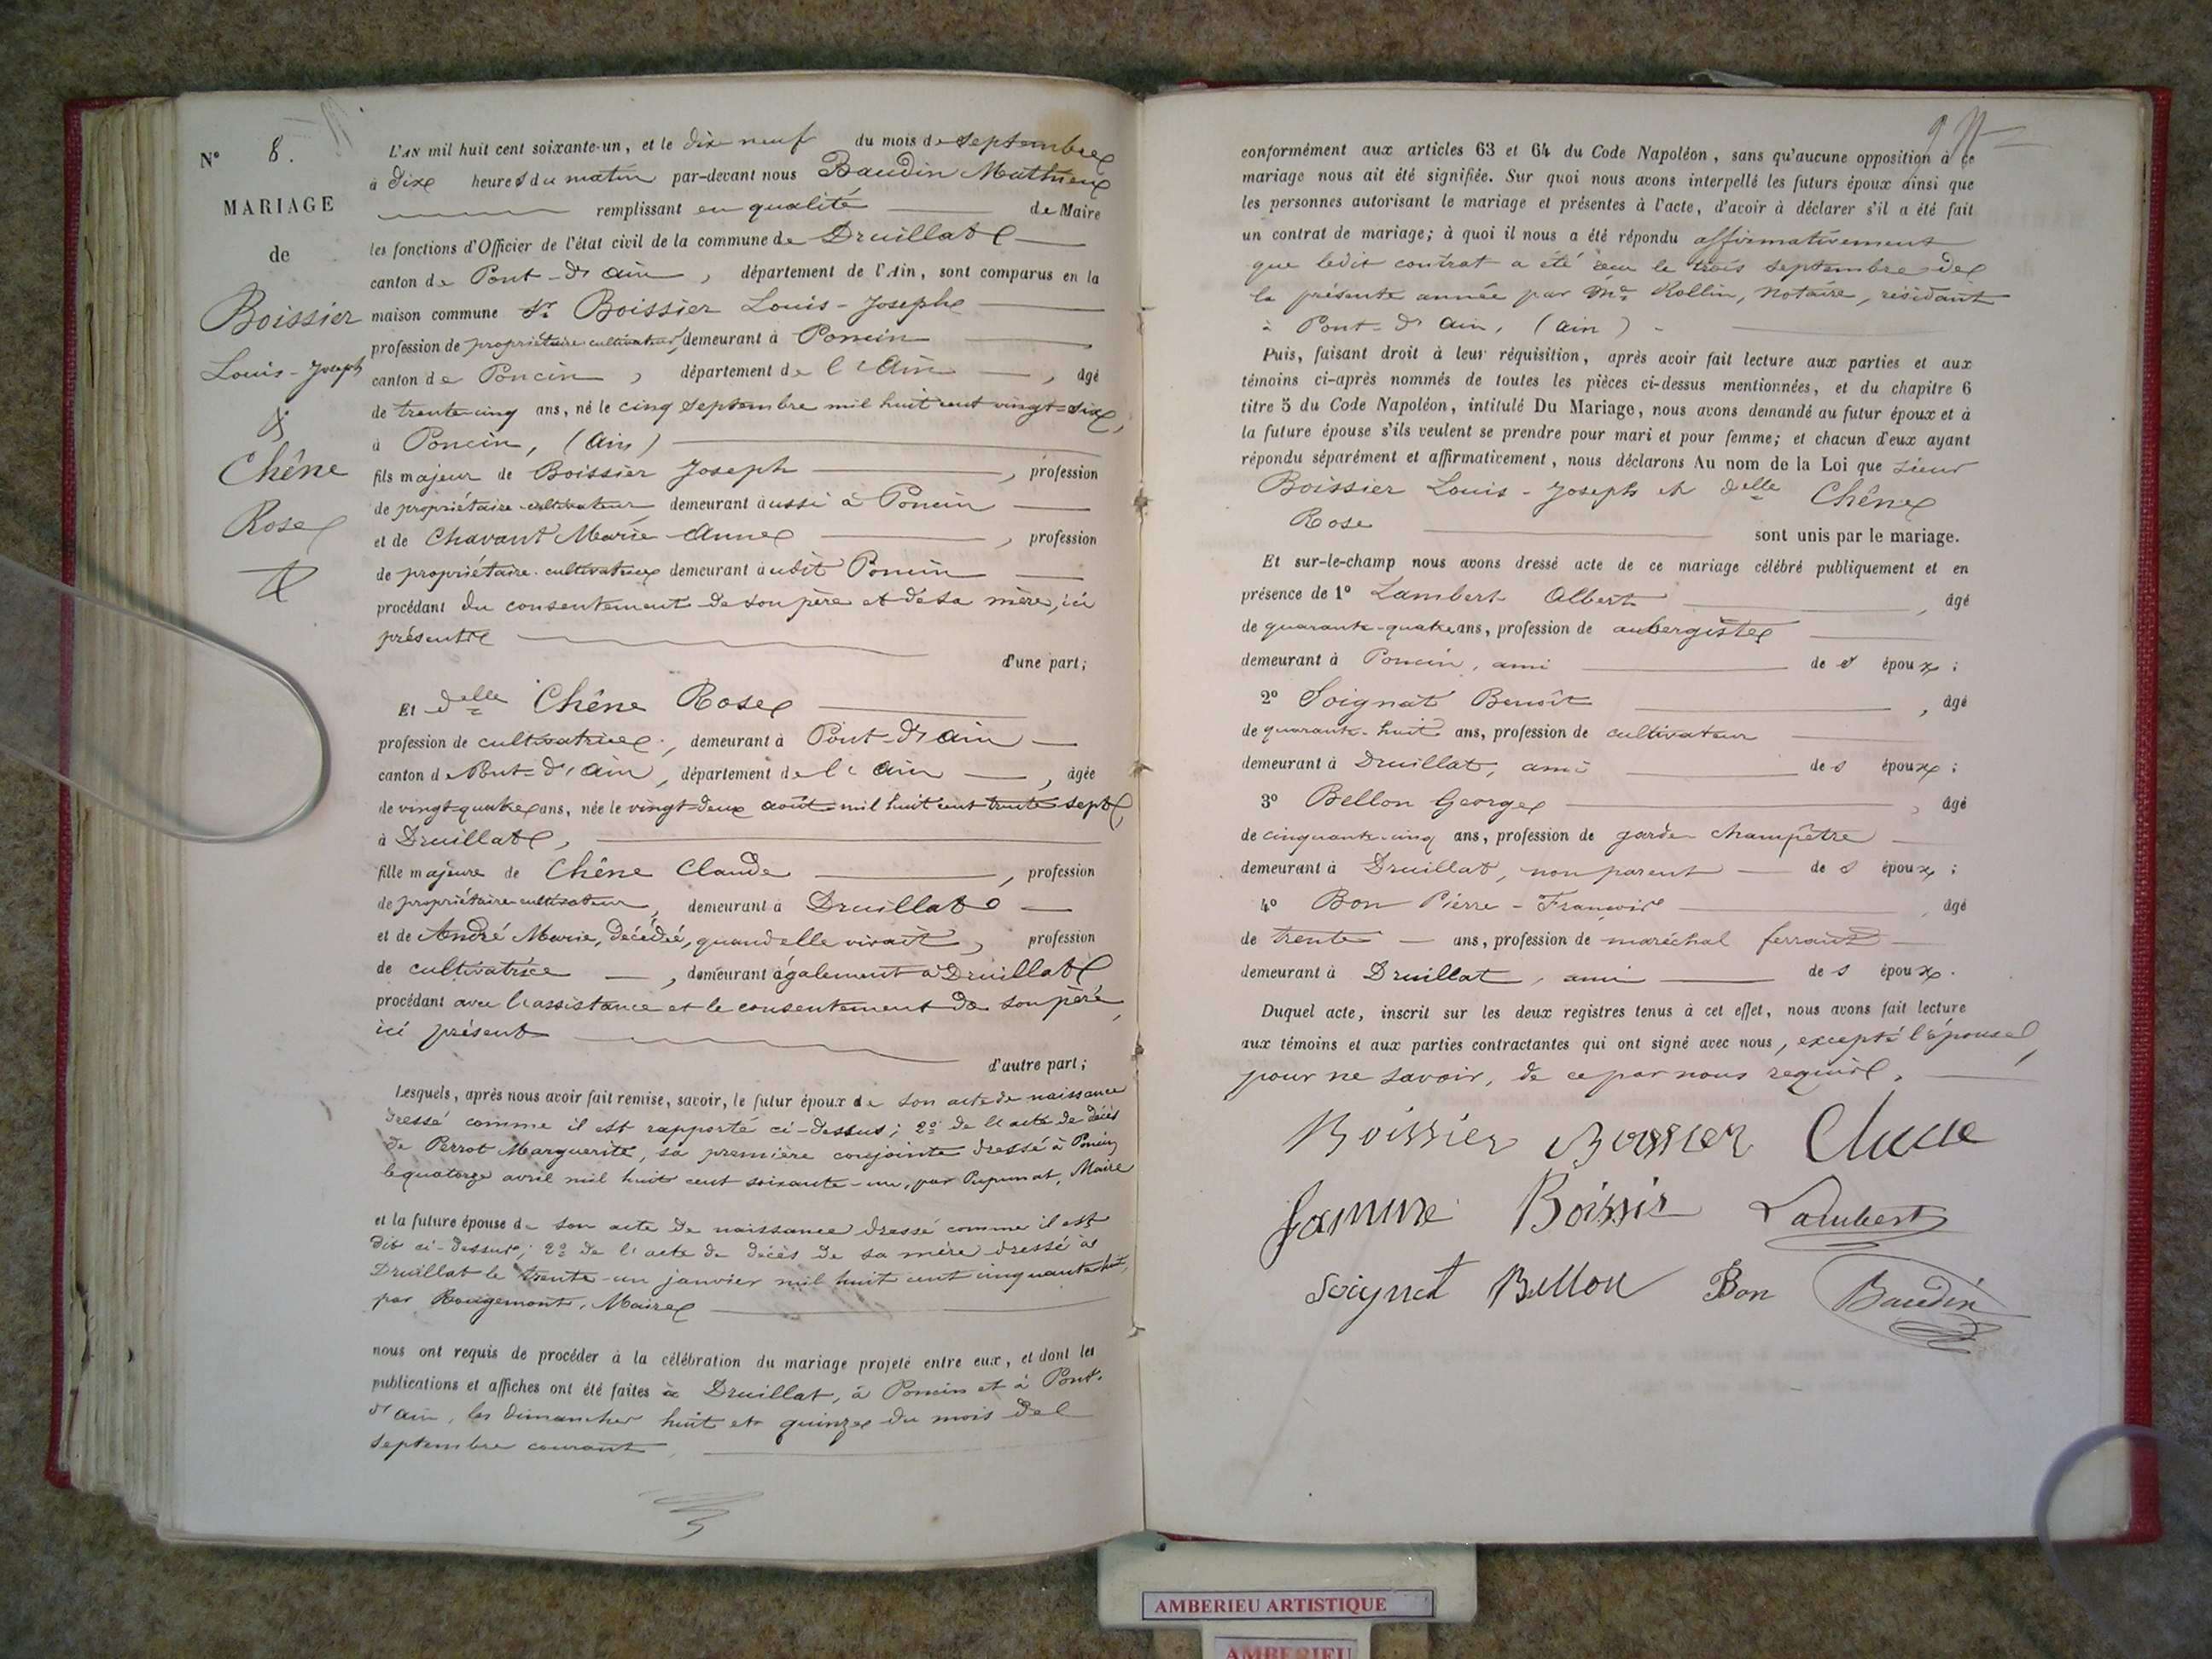 N° 8.
MARIAGE
de
Boissier
Louis-Joseph
&
Chêne
Rose
L'AN mil huit cent soixante-un, et le dix neuf du mois de septembre
à dix heures du matin par-devant nous Baudin Mathieu
remplissant en qualité de Maire
les fonctions d'Officier de l'état civil de la commune de Druillat
canton de Pont-d'Ain, département de l'Ain, sont comparus en la
maison commune Sr Boissier Louis-Joseph
profession de propriétaire cultivateur, demeurant à Poncin
canton de Poncin, département de l'Ain, âgé
de trente-cinq ans, né le cinq septembre mil huit cent vingt-six,
à Poncin, (Ain)
fils majeur de Boissier Joseph, profession
de propriétaire-cultivateur demeurant aussi à Poncin
et de Chavant Marie-Anne, profession
de propriétaire-cultivatrice demeurant audit Poncin
procédant du consentement de son père et de sa mère, ici
présents
d'une part;
Et delle Chêne Rose
profession de cultivatrice, demeurant à Pont-d'Ain
canton de Pont-d'Ain, département de l'Ain, âgée
de vingt-quatre ans, née le vingt-deux août mil huit cent trente-sept,
à Druillat,
fille majeure de Chêne Claude, profession
de propriétaire-cultivateur, demeurant à Druillat
et de André Marie, décédée, quand elle vivait, profession
de cultivatrice, demeurant également à Druillat
procédant avec l'assistance et le consentement de son père,
ici présent
d'autre part;
Lesquels, après nous avoir fait remise, savoir, le futur époux de son acte de naissance
dressé comme il est rapporté ci-dessus; 2° de l'acte de décès
de Perrot Marguerite, sa première conjointe dressé à Poncin
le quatorze avril mil huit cent soixante-un, par Pupunat, Maire
et la future épouse de son acte de naissance dressé comme il est
dit ci-dessus; 2° de l'acte de décès de sa mère dressé à
Druillat le trente-un janvier mil huit cent cinquante-huit,
par Rougemont, Maire
nous ont requis de procéder à la célébration du mariage projeté entre eux, et dont les
publications et affiches ont été faites à Druillat, à Poncin et à Pont-
d'Ain, les dimanches huit et quinze du mois de
septembre courant
conformément aux articles 63 et 64 du Code Napoléon, sans qu'aucune opposition à ce
mariage nous ait été signifiée. Sur quoi nous avons interpellé les futurs époux ainsi que
les personnes autorisant le mariage et présentes à l'acte, d'avoir à déclarer s'il a été fait
un contrat de mariage; à quoi il nous a été répondu affirmativement
que ledit contrat a été reçu le trois septembre de
la présente année par Me Rollin, Notaire, résidant
à Pont-d'Ain, (Ain)
Puis, faisant droit à leur réquisition, après avoir fait lecture aux parties et aux
témoins ci-après nommés de toutes les pièces ci-dessus mentionnées, et du chapitre 6
titre 5 du Code Napoléon, intitulé Du Mariage, nous avons demandé au futur époux et à
la future épouse s'ils veulent se prendre pour mari et pour femme; et chacun d'eux ayant
répondu séparément et affirmativement, nous déclarons Au nom de la Loi que sieur
Boissier Louis-Joseph et delle Chêne
Rose sont unis par le mariage.
Et sur-le-champ nous avons dressé acte de ce mariage célébré publiquement et en
présence de 1° Lambert Albert, âgé
de quarante-quatre ans, profession de aubergiste
demeurant à Poncin, ami des époux;
2° Soignat Benoît, âgé
de quarante-huit ans, profession de cultivateur
demeurant à Druillat, ami des époux;
3° Bellon George, âgé
de cinquante-cinq ans, profession de garde champêtre
demeurant à Druillat, non parent des époux;
4° Bon Pierre-François, âgé
de trente ans, profession de maréchal ferrant
demeurant à Druillat, ami des époux.
Duquel acte, inscrit sur les deux registres tenus à cet effet, nous avons fait lecture
aux témoins et aux parties contractantes qui ont signé avec nous, excepté l'épouse
pour ne savoir, de ce par nous requise.
Boissier Boissier
Boissier Lambert
Soignat Bellon Bon Baudin
AMBERIEU ARTISTIQUE
AMBERIEU